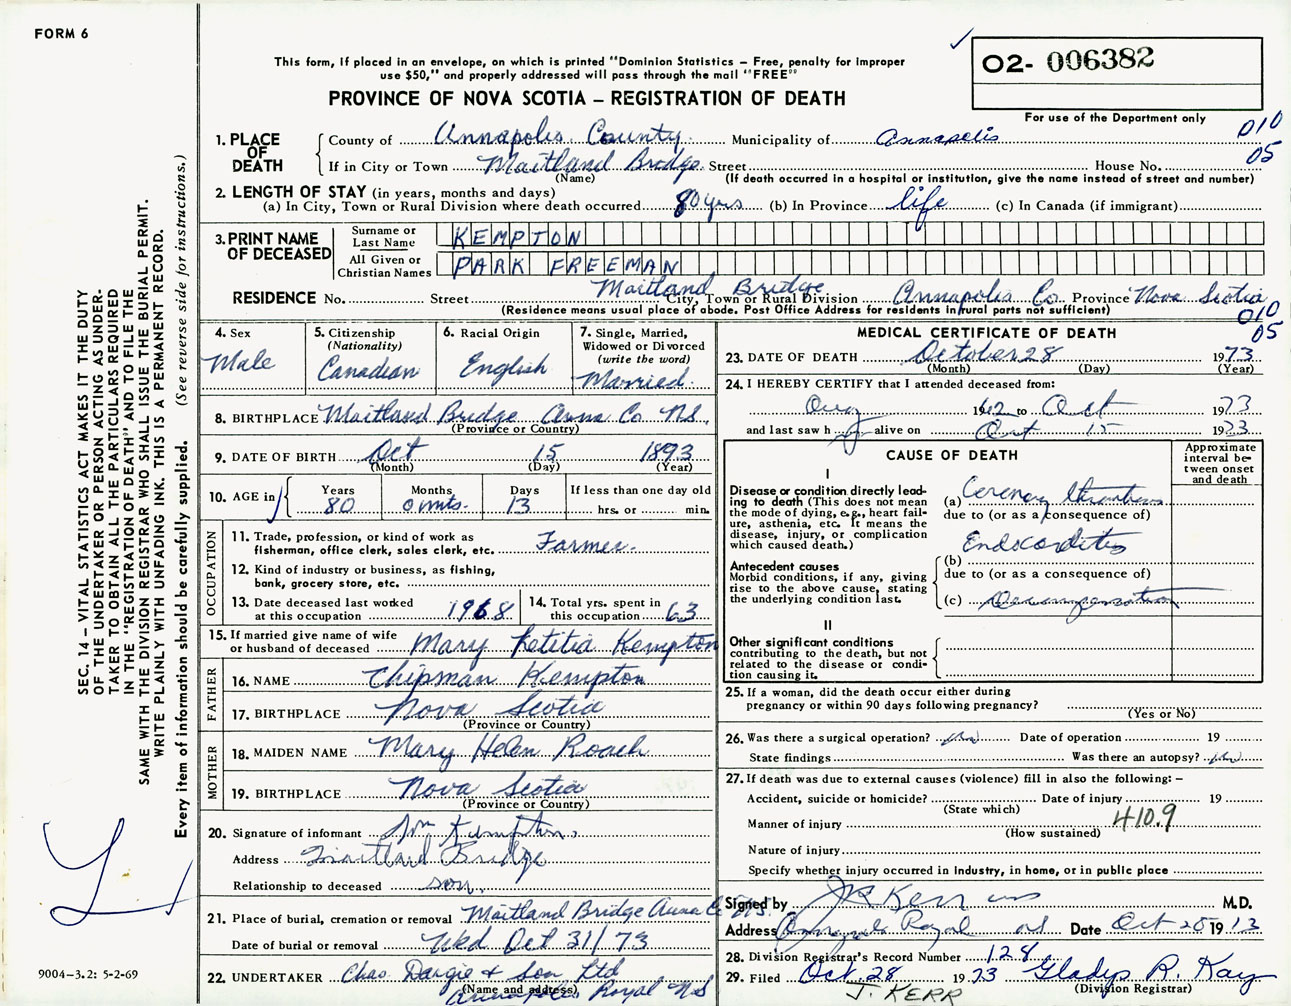 FORM 6
This form, if placed in an envelope, on which is printed "Dominion Statistics – Free, penalty for improper
use $50," and properly addressed will pass through the mail "FREE"
PROVINCE OF NOVA SCOTIA – REGISTRATION OF DEATH
O2- 006382
For use of the Department only
010
05
1. PLACE OF DEATH
County of Annapolis County Municipality of Annapolis
If in City or Town Maitland Bridge Street House No.
(Name) (If death occurred in a hospital or institution, give the name instead of street and number)
2. LENGTH OF STAY (in years, months and days)
(a) In City, Town or Rural Division where death occurred 80 yrs (b) In Province life (c) In Canada (if immigrant)
3. PRINT NAME OF DECEASED
Surname or Last Name KEMPTON
All Given or Christian Names PARK FREEMAN
RESIDENCE No. Street Maitland Bridge City, Town or Rural Division Annapolis Co. Province Nova Scotia
(Residence means usual place of abode. Post Office Address for residents in rural parts not sufficient)
010
05
4. Sex Male
5. Citizenship (Nationality) Canadian
6. Racial Origin English
7. Single, Married, Widowed or Divorced (write the word) Married
8. BIRTHPLACE Maitland Bridge Anna Co N.S.
(Province or Country)
9. DATE OF BIRTH Oct 15 1893
(Month) (Day) (Year)
10. AGE in Years 80 Months 0 mts. Days 13 If less than one day old hrs. or min.
OCCUPATION
11. Trade, profession, or kind of work as
fisherman, office clerk, sales clerk, etc. Farmer.
12. Kind of industry or business, as fishing,
bank, grocery store, etc.
13. Date deceased last worked at this occupation 1968
14. Total yrs. spent in this occupation 63
15. If married give name of wife
or husband of deceased Mary Letitia Kempton
FATHER
16. NAME Chipman Kempton
17. BIRTHPLACE Nova Scotia
(Province or Country)
MOTHER
18. MAIDEN NAME Mary Helen Roach
19. BIRTHPLACE Nova Scotia
(Province or Country)
20. Signature of informant Kempton
Address Maitland Bridge
Relationship to deceased son.
21. Place of burial, cremation or removal Maitland Bridge Anna Co N.S.
Date of burial or removal Wed Oct 31/73
22. UNDERTAKER Chas. Dargie & Son Ltd
(Name and address) Annapolis Royal N S
MEDICAL CERTIFICATE OF DEATH
23. DATE OF DEATH October 28 1973
(Month) (Day) (Year)
24. I HEREBY CERTIFY that I attended deceased from:
Aug 1962 to Oct 1973
and last saw h alive on Oct 15 1973
CAUSE OF DEATH
Approximate interval between onset and death
I
Disease or condition directly lead-
ing to death (This does not mean
the mode of dying, e.g., heart fail-
ure, asthenia, etc. It means the
disease, injury, or complication
which caused death.)
(a) Coronary thrombosis
due to (or as a consequence of)
Endocarditis
Antecedent causes
Morbid conditions, if any, giving
rise to the above cause, stating
the underlying condition last.
(b)
due to (or as a consequence of)
(c) Decompensation
II
Other significant conditions
contributing to the death, but not
related to the disease or condi-
tion causing it.
25. If a woman, did the death occur either during
pregnancy or within 90 days following pregnancy?
(Yes or No)
26. Was there a surgical operation? no Date of operation 19
State findings Was there an autopsy? no
27. If death was due to external causes (violence) fill in also the following: –
Accident, suicide or homicide? Date of injury 19
(State which)
Manner of injury 410.9
(How sustained)
Nature of injury
Specify whether injury occurred in industry, in home, or in public place
Signed by Kerr M.D.
Address Annapolis Royal Date Oct 19
28. Division Registrar's Record Number 128
29. Filed Oct. 28 1973 Gladys R. Kay
(Division Registrar)
J. KERR
SEC. 14 – VITAL STATISTICS ACT MAKES IT THE DUTY
OF THE UNDERTAKER OR PERSON ACTING AS UNDER-
TAKER TO OBTAIN ALL THE PARTICULARS REQUIRED
IN THE "REGISTRATION OF DEATH" AND TO FILE THE
SAME WITH THE DIVISION REGISTRAR WHO SHALL ISSUE THE BURIAL PERMIT.
WRITE PLAINLY WITH UNFADING INK. THIS IS A PERMANENT RECORD.
Every item of information should be carefully supplied. (See reverse side for instructions.)
9004-3.2: 5-2-69